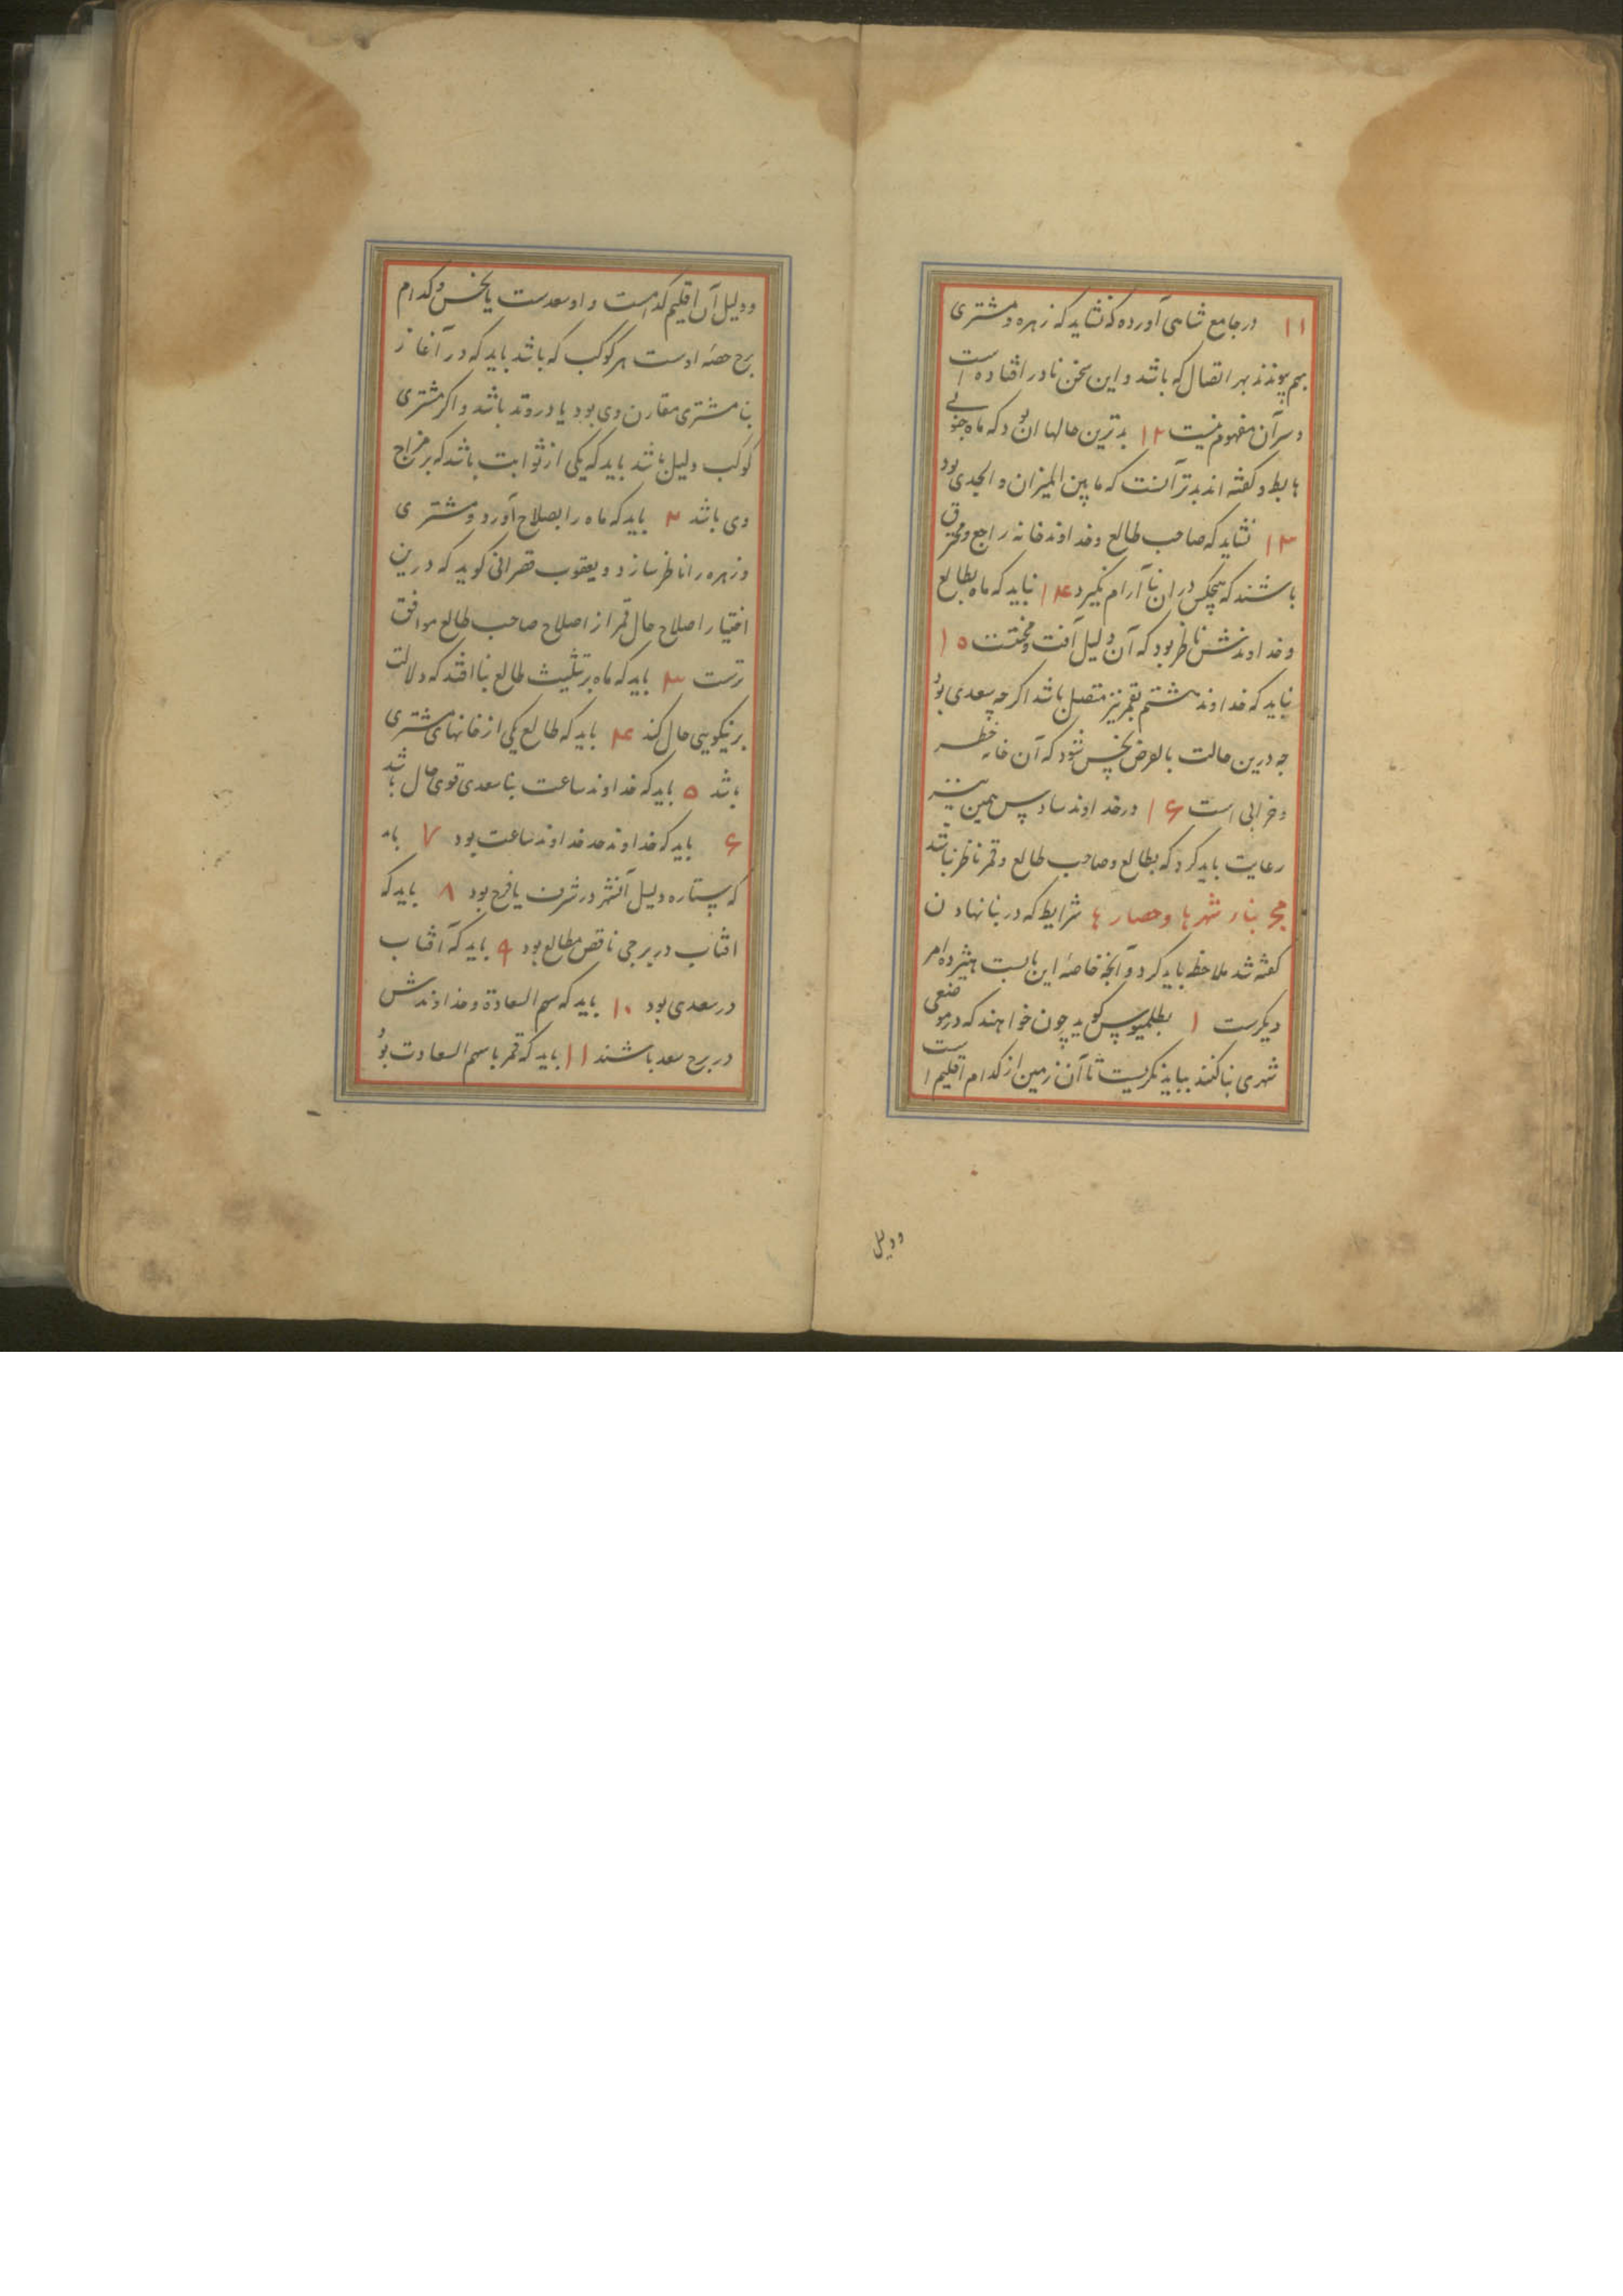 ۱۱ در جامع شاهی آورده که نشاید که زهره و مشتری
بهم پیوندند بهر اتصال که باشد و این سخن نادر افتاده است
و سر آن مفهوم نیست ۱۲ بدترین حالها آن بود که ماه جنوبی
هابط و کفته اند بدتر آنست که ما بین المیزان و الجدی بود
۱۳ نشاید که صاحب طالع و خداوند خانه راجع و محترق
باشند که هیچکس در آن بنا آرام نکیرد ۱۴ نباید که ماه بطالع
و خداوندش ناظر بود که آن دلیل آفت و محنتست ۱۵
نباید که خداوند هشتم بقمر نیز متصل باشد اکر چه سعدی بود
چه درین حالت بالعرض نحس شود که آن خانه خطر
و خرابی است ۱۶ در خداوند سادس همین نیز
رعایت باید کرد که بطالع و صاحب طالع و قمر ناظر نباشد
مج بناء شهرها و حصارها شرایط که در بنا نهادن
کفته شد ملاحظه باید کرد و آنچه خاصهٔ این بابست هیژده امر
دیکرست ۱ بطلمیوس کوید چون خواهند که در موضعی
شهری بنا کنند بباید نکریست تا آن زمین از کدام اقلیم است
ودلیل
و دلیل آن اقلیم کدامست و او سعدست یا نحس و کدام
برج حصهٔ اوست هر کوکب که باشد باید که در آغاز
بنا مشتری مقارن وی بود یا در وتد باشد و اکر مشتری
کوکب دلیل باشد باید که یکی از ثوابت باشد که بر مزاج
وی باشد ۲ باید که ماه را بصلاح آورد و مشتری
و زهره را ناظر سازد و یعقوب قصرانی کوید که درین
اختیار اصلاح حال قمر از اصلاح صاحب طالع موافق
ترست ۳ باید که ماه بر تثلیث طالع بنا افتد که دلالت
بر نیکویی حال کند ۴ باید که طالع یکی از خانهای مشتری
باشد ۵ باید که خداوند ساعت بنا سعدی قوی حال باشد
۶ باید که خداوند حد خداوند ساعت بود ۷ باید
که ستاره دلیل آنشهر در شرف یا فرح بود ۸ باید که
افتاب در برجی ناقص مطالع بود ۹ باید که آفتاب
در سعدی بود ۱۰ باید که سهم السعادة و خداوندش
در برج سعد باشند ۱۱ باید که قمر با سهم السعادت بود